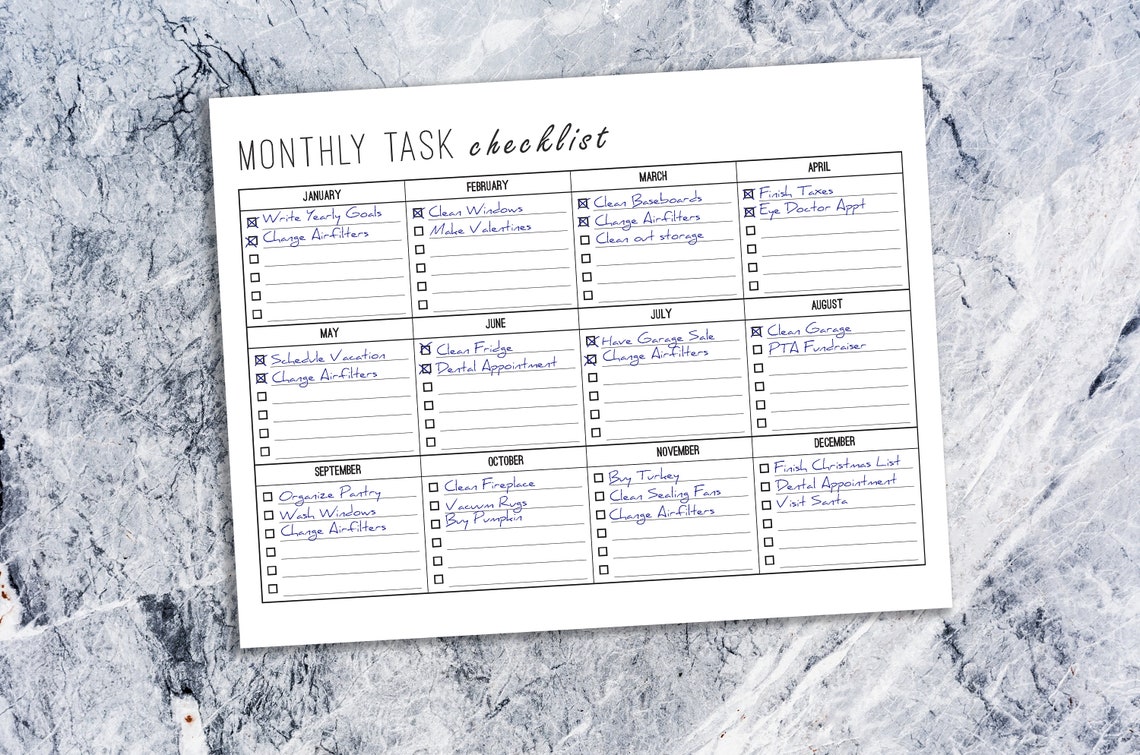 MONTHLY TASK checklist
JANUARY
Write Yearly Goals
Change Airfilters
FEBRUARY
Clean Windows
Make Valentines
MARCH
Clean Baseboards
Change Airfilters
Clean out storage
APRIL
Finish Taxes
Eye Doctor Appt
MAY
Schedule Vacation
Change Airfilters
JUNE
Clean Fridge
Dental Appointment
JULY
Have Garage Sale
Change Airfilters
AUGUST
Clean Garage
PTA Fundraiser
SEPTEMBER
Organize Pantry
Wash Windows
Change Airfilters
OCTOBER
Clean Fireplace
Vacuum Rugs
Buy Pumpkin
NOVEMBER
Buy Turkey
Clean Sealing Fans
Change Airfilters
DECEMBER
Finish Christmas List
Dental Appointment
Visit Santa